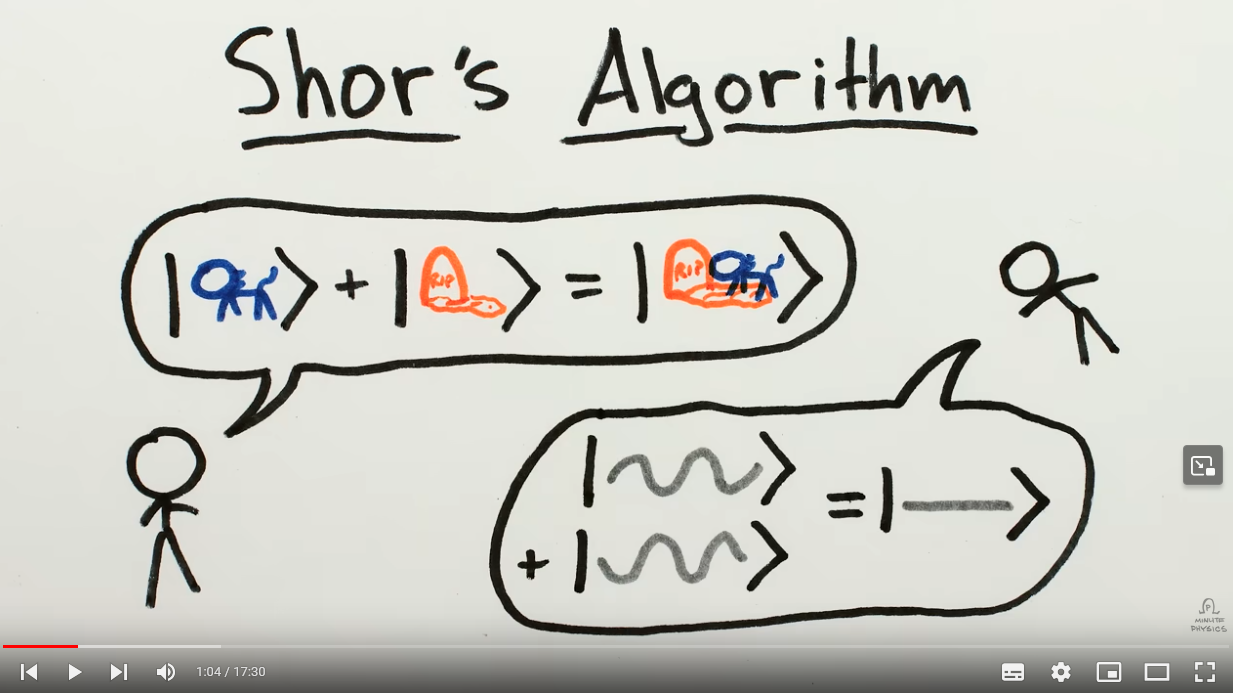 Shor's Algorithm
|⟩ + | RIP ⟩ = | RIP ⟩
|⟩
+ |⟩ = |⟩
MINUTE
PHYSICS
1:04 / 17:30